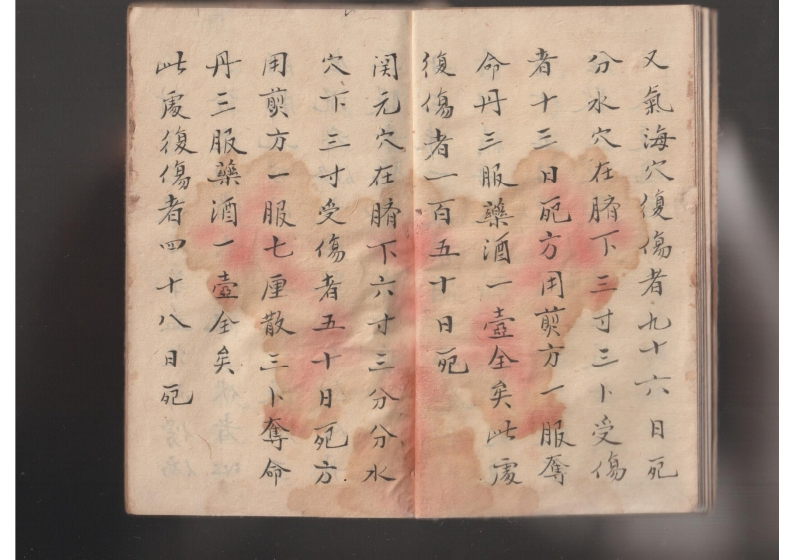 又氣海穴復傷者九十六日死
分水穴在臍下三寸三卜受傷
者十三日死方用剪方一服奪
命丹三服藥酒一壺全矣此處
復傷者一百五十日死
関元穴在臍下六寸三分分水
穴下三寸受傷者五十日死方
用剪方一服七厘散三卜奪命
丹三服藥酒一壺全矣
此處復傷者四十八日死